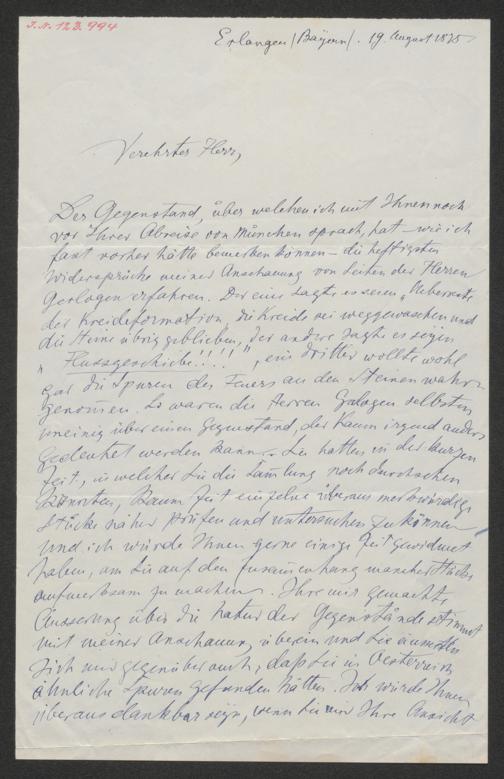 J.N. 123.994
Erlangen (Bayern). 19. August 1875
Verehrter Herr,
Der Gegenstand, über welchen ich mit Ihnen noch
vor Ihrer Abreise von München sprach, hat – wie ich
fast vorher hätte bemerken können – die heftigsten
Widersprüche meiner Anschauung von Seiten der Herren
Geologen erfahren. Der eine sagte es seien "Ueberreste
der Kreideformation, die Kreide sei weggewaschen und
die Steine übrig geblieben, der andere sagte es seyen
"Flussgeschiebe!!!!", ein dritter wollte wohl
gar die Spuren des Feuers an den Steinen wahr-
genommen. So waren die Herren Geologen selbst
uneinig über einen Gegenstand, der kaum irgend anders
gedeutet werden kann. – Sie hatten in der kurzen
Zeit, in welcher Sie die Samlung noch durchsehen
konnten, kaum Zeit einzelne überaus merkwürdige
Stücke näher prüfen und untersuchen zu können
und ich würde Ihnen gerne einige Zeit gewidmet
haben, um Sie auf den Zusammenhang mancher Stücke
aufmerksam zu machen. Ihre mir gemachte
Äusserung über die Natur der Gegenstände stimmt
mit meiner Anschauung überein und Sie äusserten
sich mir gegenüber auch, daß Sie in Oesterreich
ähnliche Spuren gefunden hätten. Ich würde Ihnen
überaus dankbar seyn, wenn Sie mir Ihre Ansicht